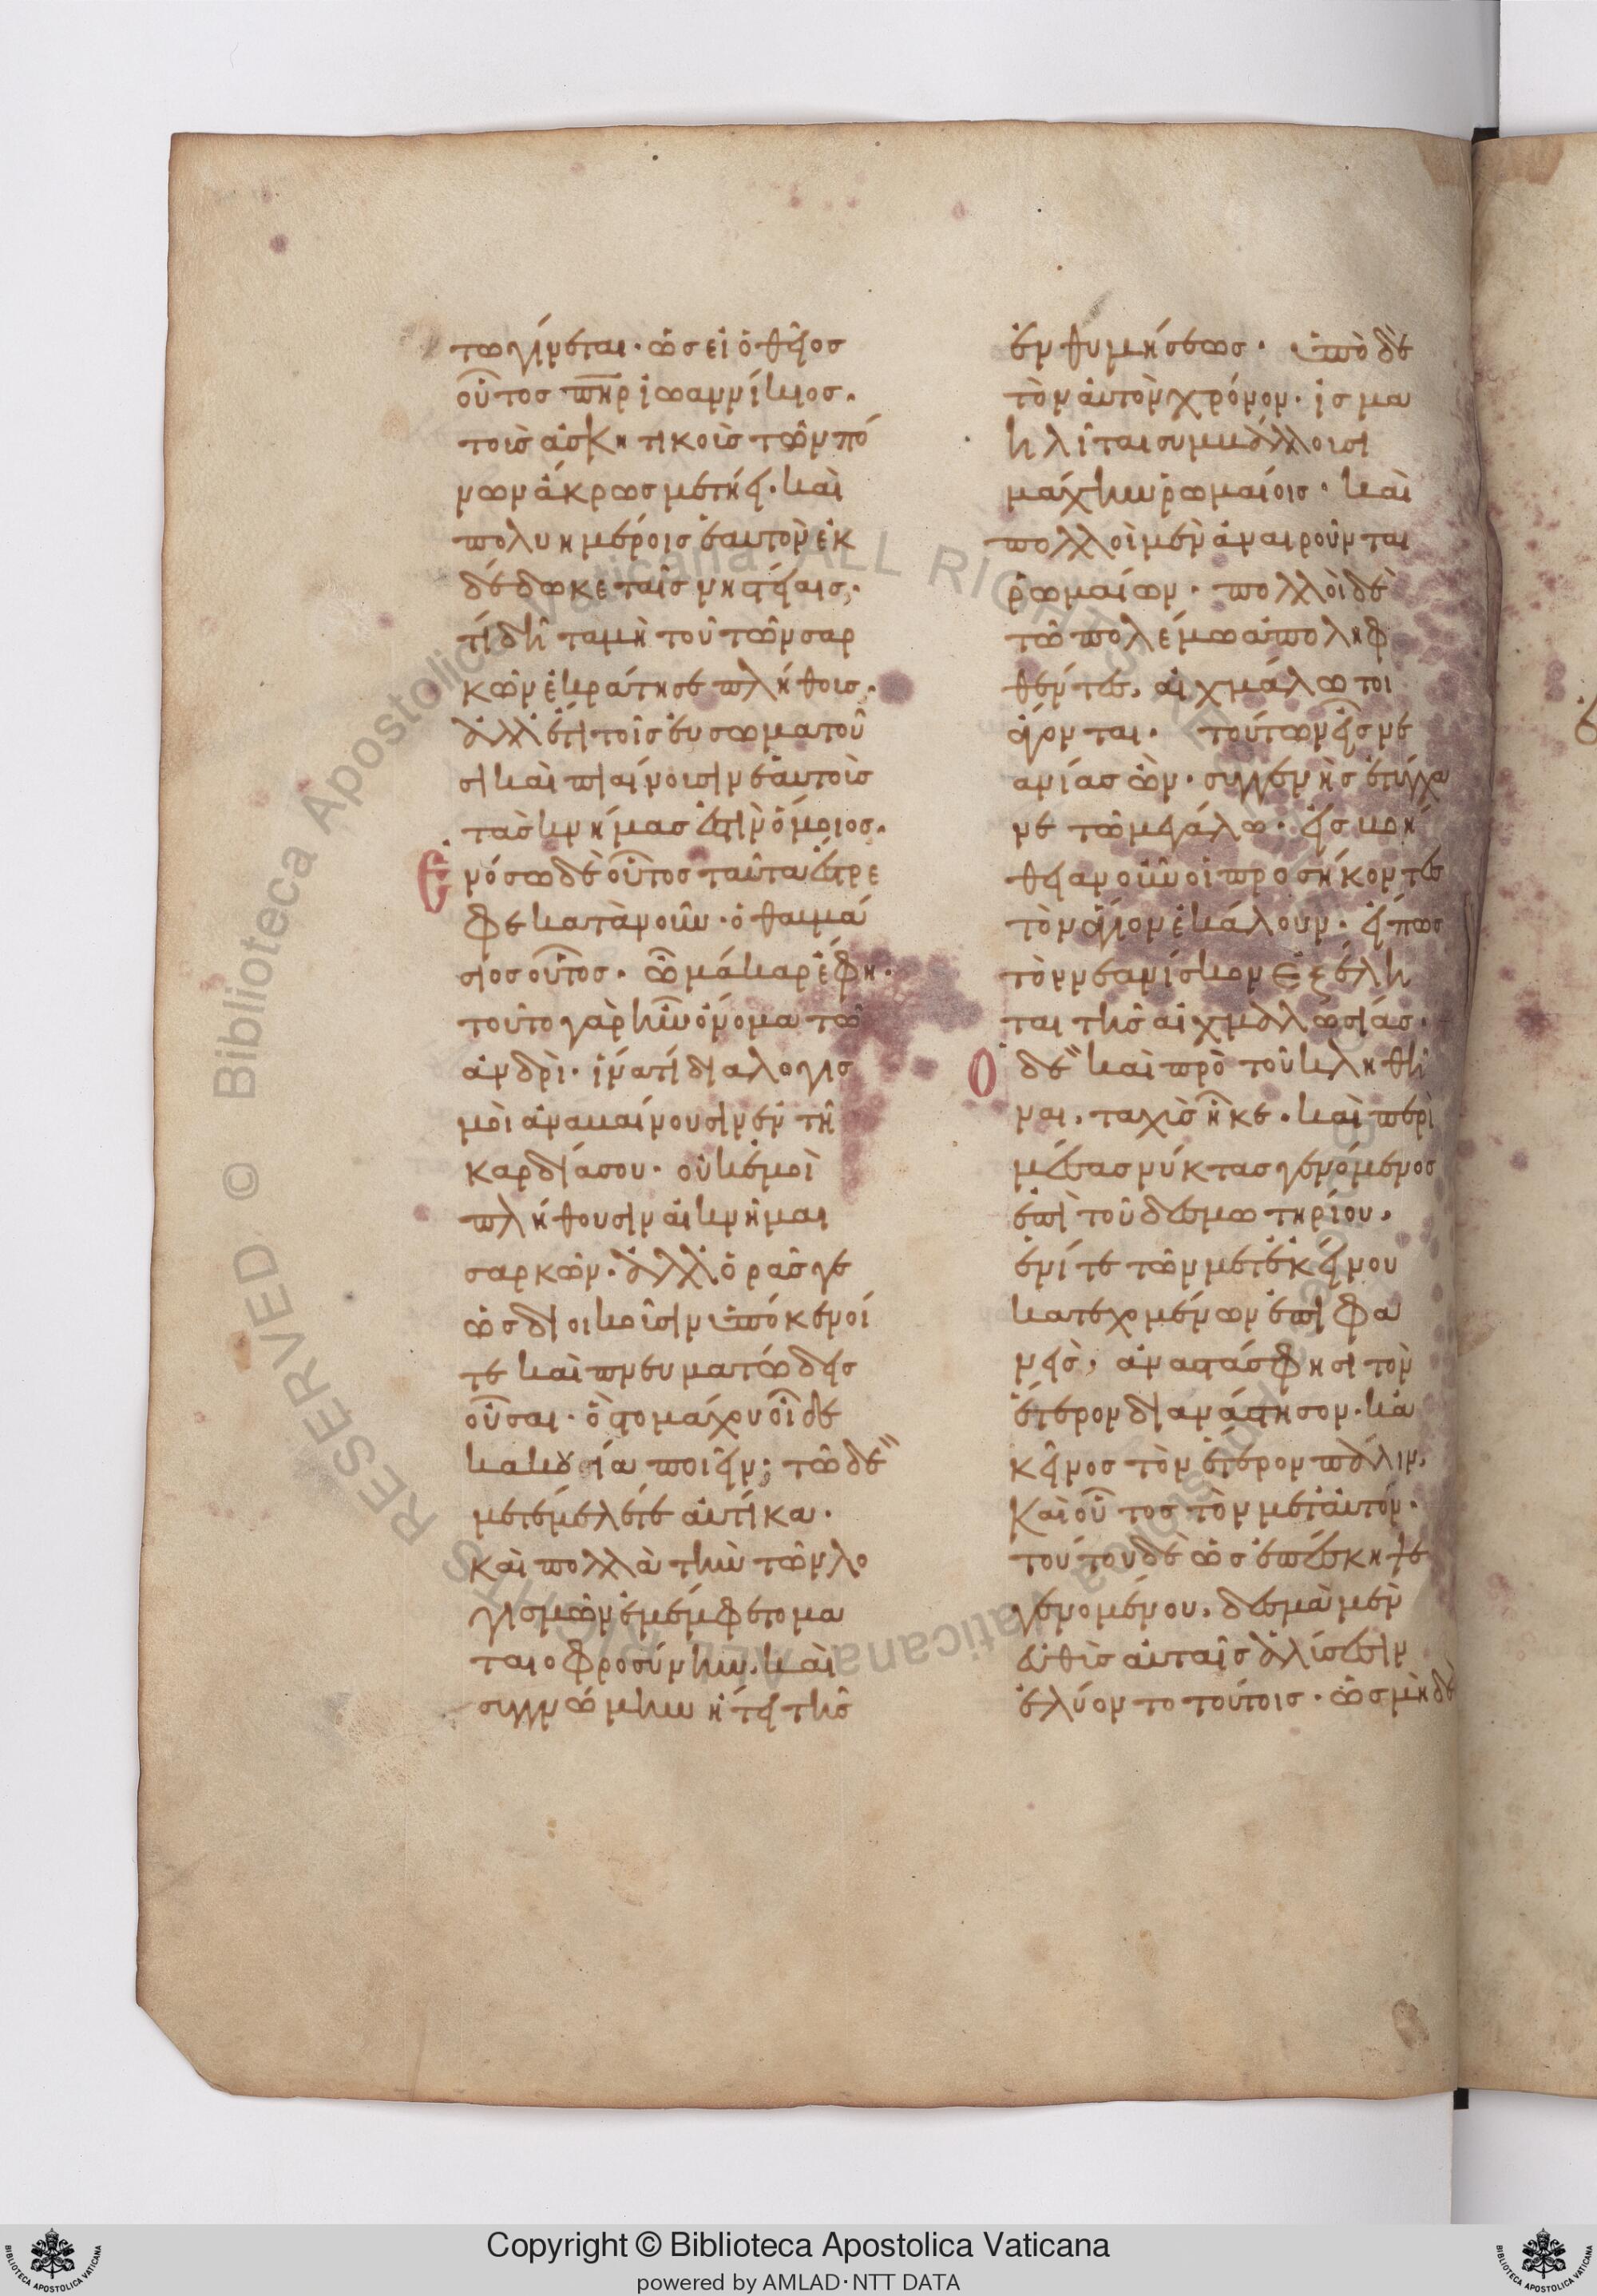 τω γίνεται· ὡσεὶ ὁ θεῖος
οὗτος πηρ ἰωαννίκιος.
τοῖς ἀσκητικοῖς τῶν πό
νων ἄκρως μετήει· καὶ
πολυημέροις ἑαυτὸν ἐκ
δέδωκε ταῖς νηστείαις,
τί δῆτα μὴ τοῦτῶν σαρ
κῶν ἐκράτησε πλήθοις,
ἀλλ ἔτι τοῖς ἐνσωματοῦ
σι καὶ πιαίνουσιν ἑαυτοῖς
τὰς κνήμας ἐστὶν ὅμοιος.
Ενόσω δὲ οὗτος ταῦτα ἔστρε
φε κατὰ νοῦν· ὁ θαυμά
σιος οὗτος· ὦ μάκαρ ἔφη.
τοῦτο γὰρ ἦν ὄνομα τῶ
ἀνδρὶ· ἱνατί διαλογισ
μοὶ ἀναβαίνουσιν ἐν τῆ
καρδία σου· οὐκ ἐμοὶ
πλήθουσιν αἱ κνῆμαι
σαρκῶν· ἀλλ ὁρᾶς γε
ὡς διοικοῦσιν ὑπόκενοί
τε καὶ πνευματώδεις
οὖσαι· ὁ στομάχου οἶδε
κακουργία ποιεῖν; τῶ δὲ
μετέμελέ τε αὐτίκα·
καὶ πολλὰ τὴν τῶν λο
γισμῶν ἐμέμφετο μα
ταιοφροσύνην, καὶ
συγγνώμην ἤτει τῆς
ἐνθυμήσεως· ὑπὸ δὲ
τὸν αὐτὸν χρόνον· ἰσμα
ηλῖται συμβάλλουσι
μάχην ῥωμαίοις· καὶ
πολλοὶ μὲν ἀναιροῦνται
ῥωμαίων· πολλοὶ δὲ
τῶ πολέμω ἀποληφ
θέντες, αἰχμάλωτοι
ἄγονται· τούτων εἷς νε
ανίας ὢν· συγγενὴς ἐτύγχα
νε τῶ μεγάλω· εἰσκρι
θεὶς ἂν οὖν οἱ προσήκοντες
τὸν ἅγιον ἐκάλουν· εἴπως
τὸν νεανίσκον ἐξέλη
ται τῆς αἰχμαλωσίας.
Ο δὲ καὶ πρὸ τοῦ κληθῆ
ναι, ταχὺς ἧκε· καὶ περὶ
μέσας νύκτας γενόμενος
ἐπὶ τοῦ δεσμωτηρίου,
ἑνί τε τῶν μετ ἐκείνου
κατεχομένων ἐπιφα
νεὶς, ἀναστάς φησι τὸν
ἕτερον διανάστησον· κἀ
κεῖνος τὸν ἕτερον πάλιν,
καὶ οὗτος τὸν μετ αὐτόν·
τούτου δὲ ὡς ἐπέσκηψε
γενομένου, δεσμὰ μὲν
εὐθὺς αὐταῖς ἁλύσεσιν
ἐλύοντο τούτοις· ὡς μηδὲ
Copyright © Biblioteca Apostolica Vaticana
powered by AMLAD·NTT DATA